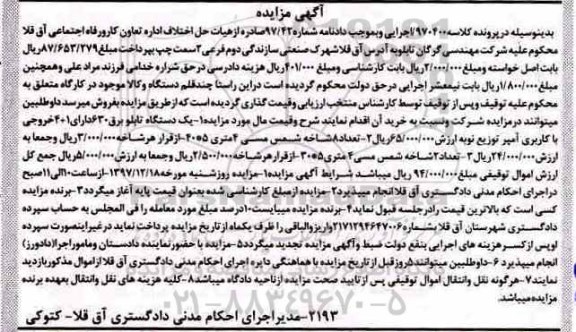 آگهی مزایده
بدینوسیله در پرونده کلاسه ۹۷۰۴۰۰/اجرایی وبموجب دادنامه شماره ۹۷/۴۲صادره ازهیات حل اختلاف اداره تعاون کار ورفاه اجتماعی آق قلا
محکوم علیه شرکت مهندسی گرگان تابلو به آدرس آق قلا شهرک صنعتی سازندگی دوم فرعی ۲سمت چپ بپرداخت مبلغ ۸۷/۶۵۳/۲۷۹ریال
بابت اصل خواسته ومبلغ ۲/۰۰۰/۰۰۰ریال بابت کارشناسی ومبلغ ۴۰۱/۰۰۰ریال هزینه دادرسی درحق شراره خدامی فرزند مراد علی وهمچنین
مبلغ ۱/۸۰۰/۰۰۰ریال بابت نیمعشر اجرایی درحق دولت محکوم گردیده است دراین راستا چندقلم دستگاه وکالا موجود در کارگاه متعلق به
محکوم علیه توقیف وپس از توقیف توسط کارشناس منتخب ارزیابی وقیمت گذاری گردیده است که ازطریق مزایده بفروش میرسد داوطلبین
میتوانند درمزایده شرکت ونسبت به خرید آن اقدام نمایند شرح وقیمت مال مورد مزایده ۱-یک دستگاه تابلو برق ۶۳۰دارای ۱+۴خروجی
با کاربری آمپر توزیع نوبه ارزش ۶۵/۰۰۰/۰۰۰ریال ۲-تعداد۸شاخه شمس مسی ۴متری ۵*۴۰ ازقرار هرشاخه ۳/۰۰۰/۰۰۰ریال وجمعا به
ارزش ۲۴/۰۰۰/۰۰۰ریال ۳-تعداد ۲شاخه شمس مسی ۴متری ۵*۳۰ ازقرار هرشاخه ۲/۵۰۰/۰۰۰ریال وجمعا به ارزش ۵/۰۰۰/۰۰۰ریال جمع کل
ارزش اموال توقیفی مبلغ ۹۴/۰۰۰/۰۰۰ ریال میباشد شرایط آگهی مزایده ۱-مزایده روزشنبه مورخه ۱۳۹۷/۱۲/۱۸ ازساعت ۱۰الی ۱۱صبح
دراجرای احکام مدنی دادگستری آق قلا انجام میپذیرد ۲-مزایده ازمبلغ کارشناسی شده بعنوان قیمت پایه آغاز میگردد ۳-برنده مزایده
کسی است که بالاترین قیمت رادرجلسه قبول نماید ۴-برنده مزایده میبایست ۱۰درصد مبلغ مورد معامله را فی المجلس به حساب سپرده
دادگستری شهرستان آق قلا بشماره ۲۱۷۱۲۹۴۶۴۷۰۰۶واریزوالباقی را ظرف یکماه از تاریخ مزایده پرداخت نماید درغیراینصورت سپرده
اوپس ازکسرهزینه های اجرایی بنفع دولت ضبط وآگهی مزایده تجدید میگردد ۵-مزایده با حضورنماینده دادستان ومامور اجرا(دادورز)
انجام میپذیرد ۶-داوطلبین میتوانند ۵روزقبل از تاریخ مزایده با هماهنگی دایره اجرای احکام مدنی دادگستری آق قلا ازاموال مذکوربازدید
نمایند ۷-هرگونه نقل وانتقال اموال توقیفی پس از تایید صحت مزایده ازناحیه دادگاه میباشد ۸-کلیه هزینه های نقل وانتقال بعهده برنده
مزایده میباشد.
۰۲۱-۸۸۳۴۹۶۷۰-۵
۲۱۹۳-مدیراجرای احکام مدنی دادگستری آق قلا- کتوکی